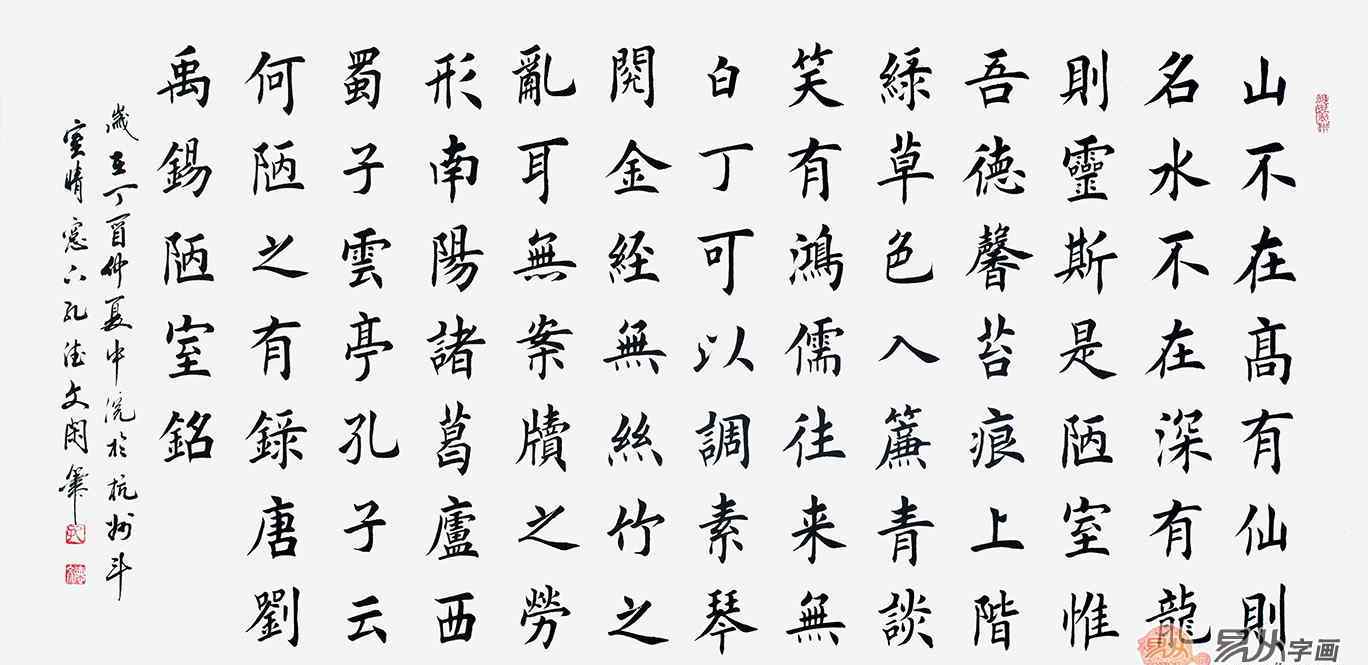 山不在髙有仙則
名水不在深有龍
則靈斯是陋室惟
吾德馨苔痕上階
緑草色入簾青談
笑有鴻儒往来無
白丁可以調素琴
閲金経無絲竹之
亂耳無案牘之勞
形南陽諸葛廬西
蜀子雲亭孔子云
何陋之有錄唐劉
禹錫陋室銘
歲在丁酉仲夏中浣於杭州斗
室晴窓下孔德文閑筆
易从字画